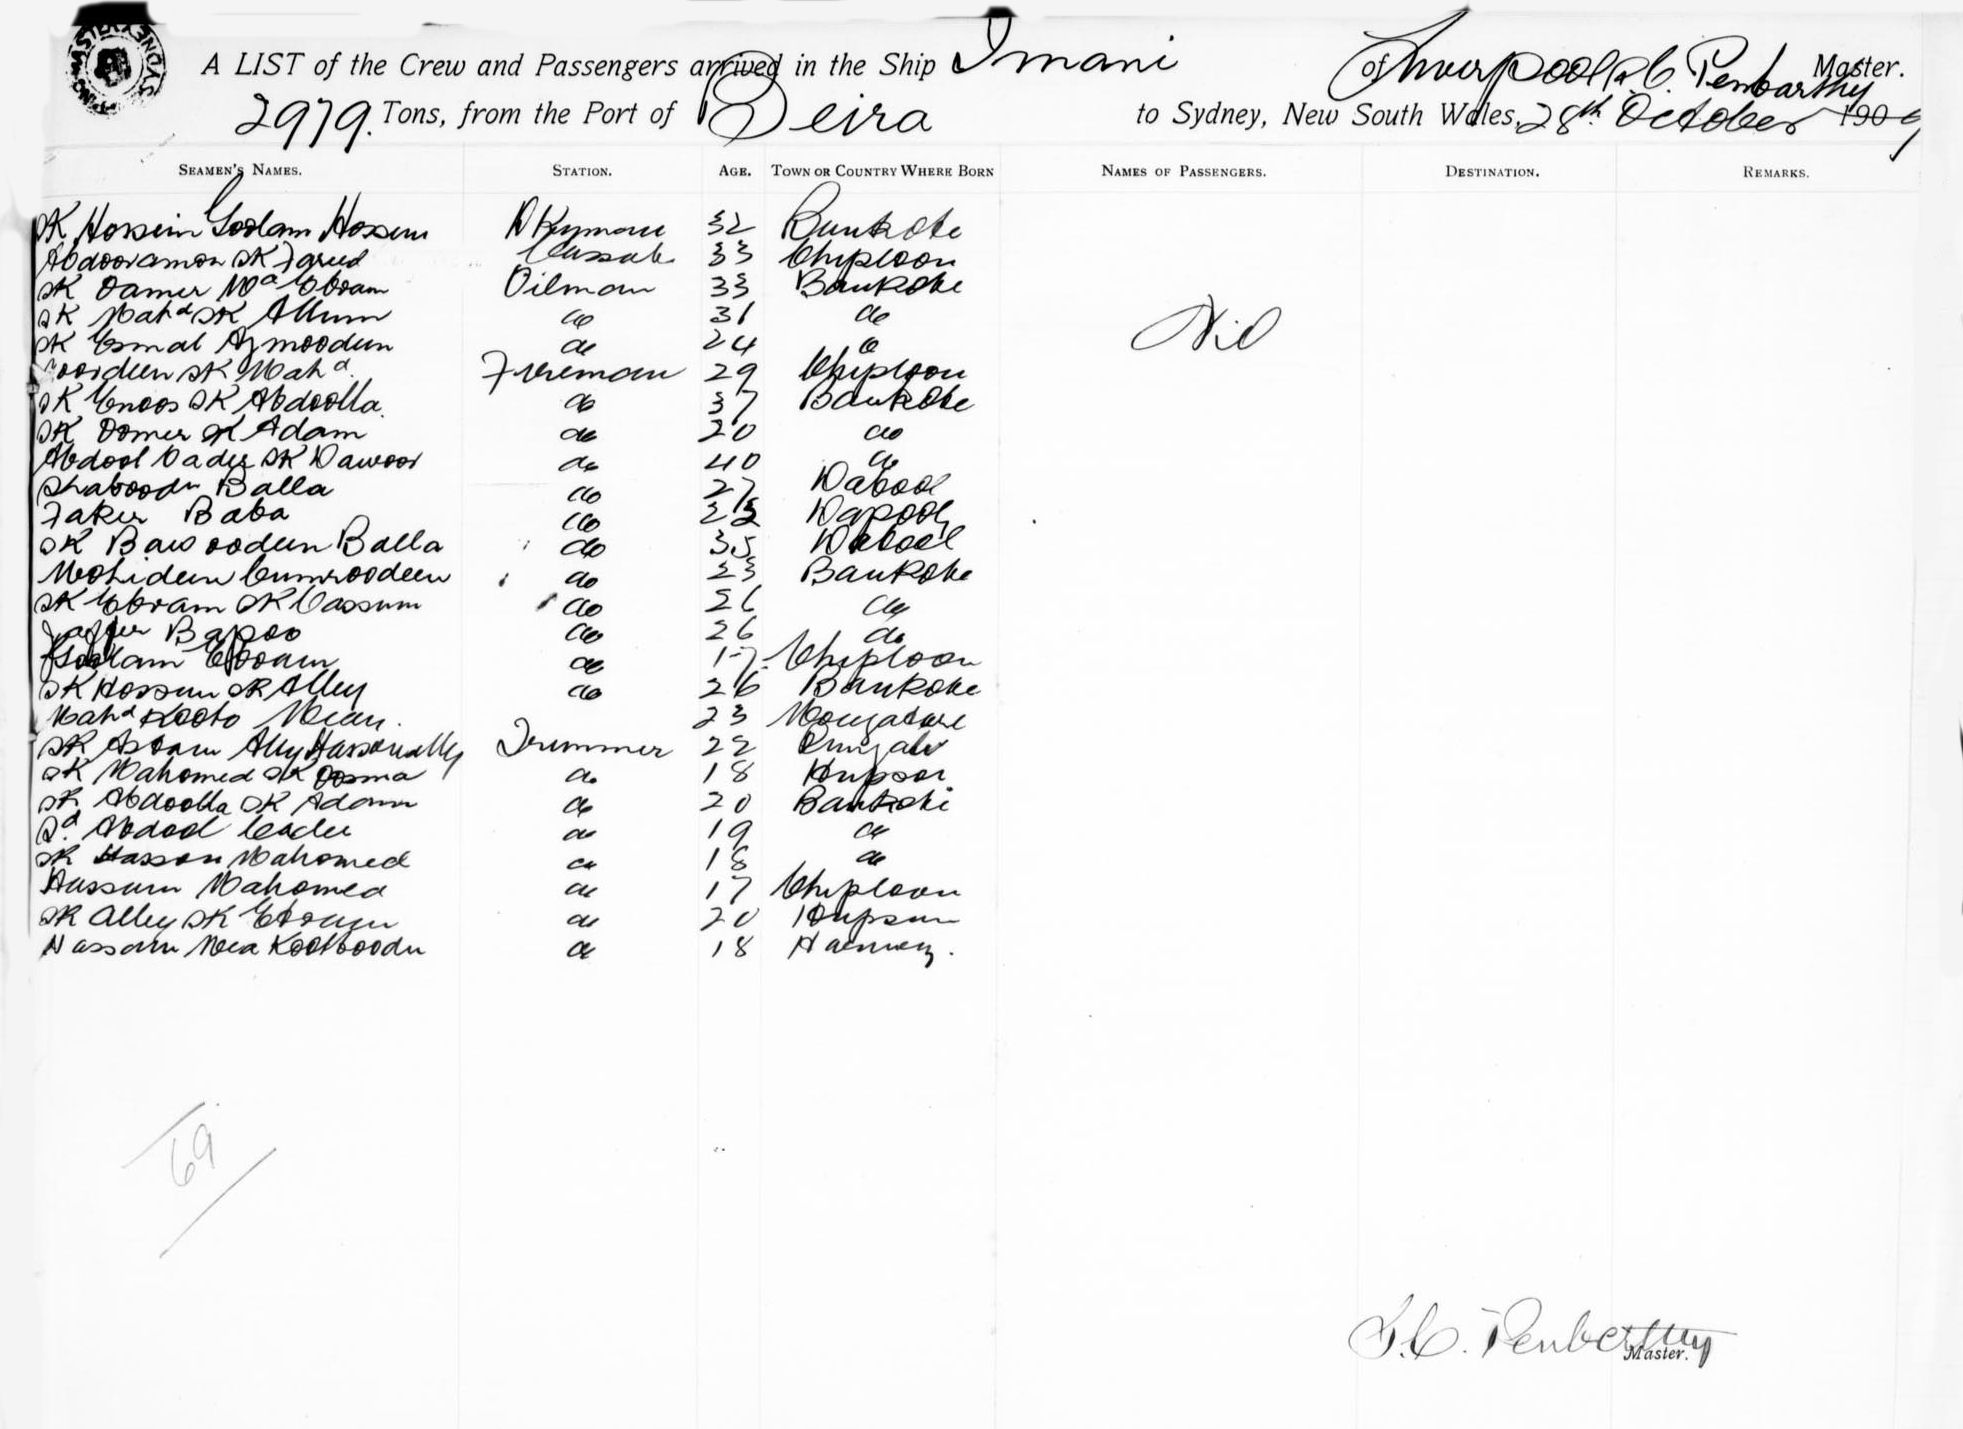 A LIST of the Crew and Passengers arrived in the Ship Imani of Liverpool Penbarthy Master.
2979. Tons, from the Port of Beira to Sydney, New South Wales, 28th October 1909
SEAMEN'S NAMES. STATION. AGE. TOWN OR COUNTRY WHERE BORN NAMES OF PASSENGERS. DESTINATION. REMARKS.
SK Hossein Goolam Hossein 32 Bankote
Abdooramon SK Fareed Cassab 33 Chiploon
SK Oamer Md Ebram Oilman 33 Bankote
SK Mahd SK Allum do 31 do
Nil
SK Esmal Ajmoodeen do 24 do
Noordeen SK Mahd Fireman 29 Chiploon
SK Enoos SK Abdoolla do 37 Bankote
SK Oomer SK Adam do 20 do
Abdool Cader SK Dawood do 40 do
Shaboodn Balla do 27 Dabool
Faker Baba do Dapooly
SK Bawoodeen Balla do 35 Dabool
Mohideen Cumroodeen do 23 Bankote
SK Ebram SK Cassum do 26 do
Jaffer Bapoo do 26 do
Goolam Ebram do 17 Chiploon
SK Hossun SK Alley do 26 Bankote
Mahd Kooto Mean. 23
SK Aly Hassonally Trimmer 22
SK Mahomed SK Oosma do 18
SK Abdoolla SK Adam do 20 Bankote
Sd. Abdool Cader do 19 do
SK Hasson Mahomed do 18 do
Hassum Mahomed do 17 Chiploon
SK Alley SK Ebram do 20
Hassam Mea Kootboodn do 18
69
T.C. Penberthy
Master.